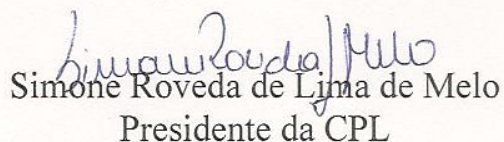 Simone Roveda de Lima de Melo
Presidente da CPL